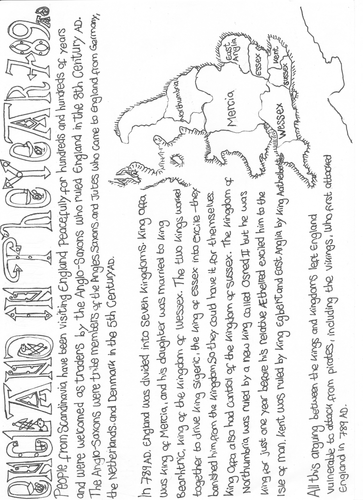 ENGLAND IN THE YEAR 789 AD
People from Scandinavia have been visiting England peacefully for hundreds and hundreds of years
and were welcomed as traders by the Anglo-Saxons who ruled England in the 8th Century AD.
The Anglo-Saxons were tribe members of the Angles, Saxons and Jutes who came to England from Germany,
the Netherlands and Denmark in the 5th Century AD.
In 789 AD. England was divided into seven kingdoms. King Offa
was king of Mercia, and his daughter was married to King
Beorhtric, king of the kingdom of Wessex. The two kings worked
together to drive king Sigeric, the king of Essex into excile - they
banished him from the kingdom so they could have it for themselves.
King Offa also had control of the kingdom of Sussex. The kingdom of
Northumbria was ruled by a new king called Osred II but he was
king for just one year before his relative Æthelred exciled him to the
Isle of man. Kent was ruled by king Egbert and East Anglia by king
All this arguing between the kings and kingdoms left England
vulnerable to attack from pirates, including the vikings, who first attacked
England in 789 AD.
Northumbria
Mercia
East
Anglia
Essex
Kent
Sussex
Wessex